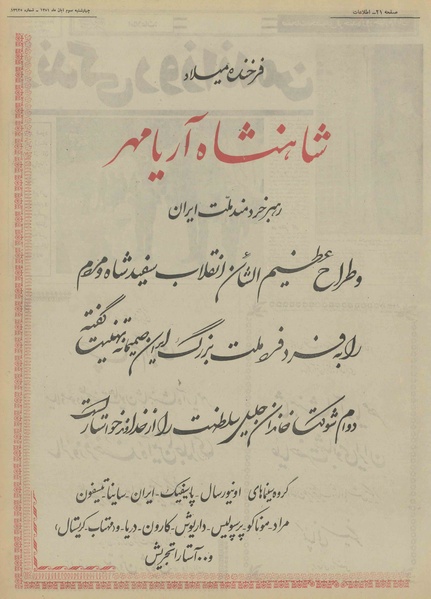 صفحه ۲۱ــ اطلاعات
چهارشنبه سوم آبان ماه
فرخنده میلاد
شاهنشاه آریامهر
رهبر خردمند ملت ایران
و طراح عظیم الشان انقلاب سفید شاه و مردم
را به فرد فرد ملت بزرگ ایران صمیمانه تهنیت گفته
دوام شوکت خاندان جلیل سلطنت را از خداوند خواستار است
گروه سینماهای اونیورسال ـ پاسیفیک ـ ایران ـ سایناـ تیسفون
مراد ـ موناکو ـ پرسپولیس ـ داریوش ـ کارون ـ دریا ـ ومهتاب ـ کریستال ـ
و ـ آستارا تجریش